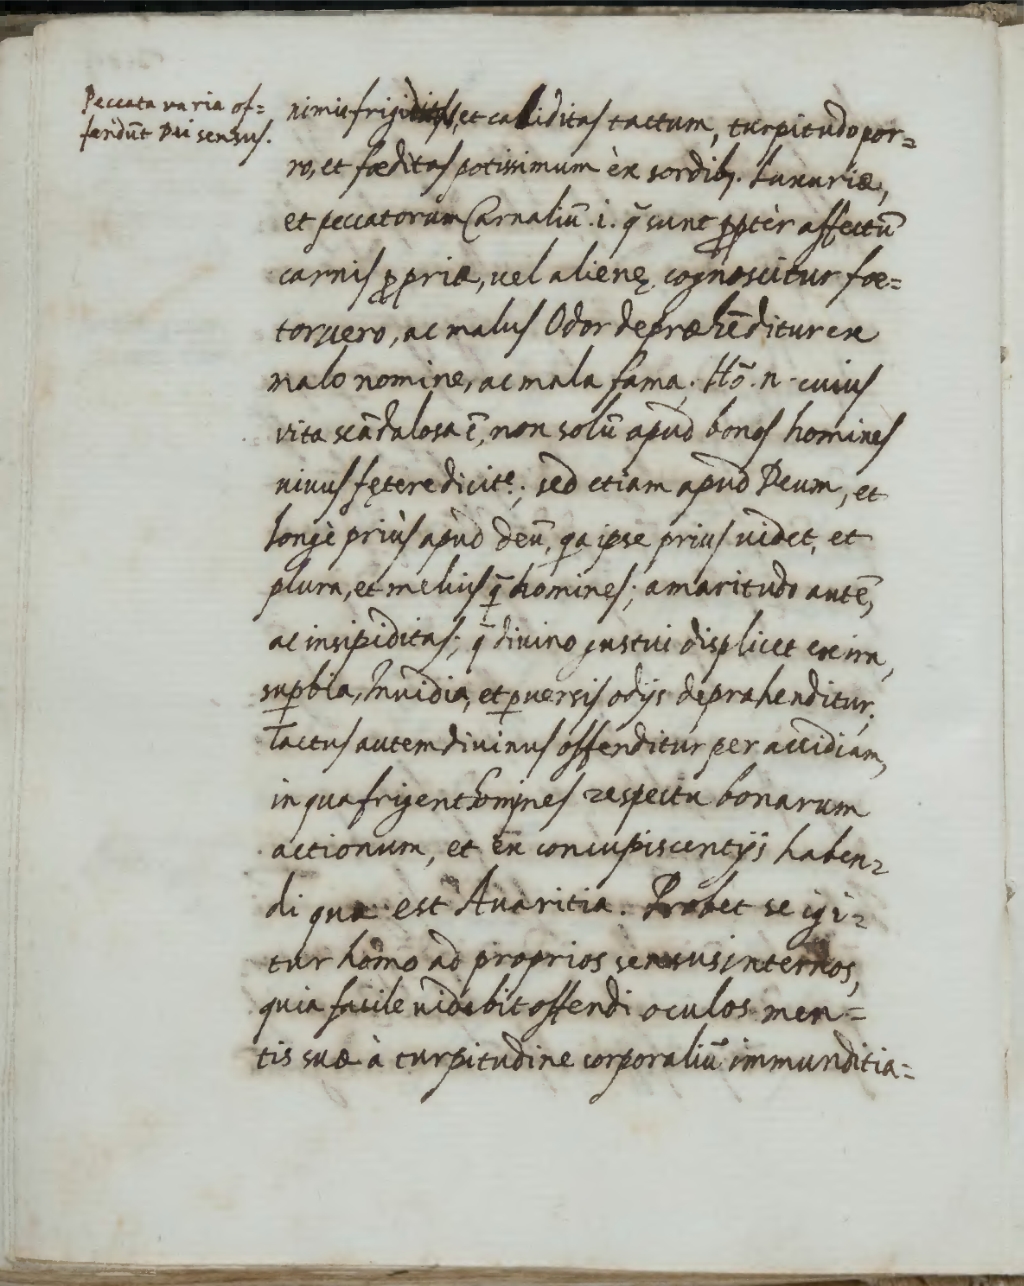 Peccata varia of=
fendūt Dei sensus.
nimiū frigiditas, et caliditas tactum, turpitudo por=
ro, et fœditas potissimum èx sordibꝫ. Luxuriæ,
et peccatorum Carnaliū .i. q̃ sunt ꝓptèr affectū
carnis ꝓpriæ, uel alienę, cognoscitur fœ=
tor uero, ac malus Odor depræhēditur ex
malo nomine, ac mala fama. Hō .n. cuius
vita scādalosa ē, non solū apud bonos homines
uiuus fętere dicitr.; sed etiam apud Deum, et
longè priùs apud deū, qa ipse prius uidet, et
plura, et melius q̃ homines; amaritudo autē,
ac insipiditas; q̃ diuino gustui displicet ex ira,
suꝑbia, Inuidia, et ꝑuersis odijs deprahenditur,
Tactus autem diuinus offenditur per accidiam,
in qua frigent homines respectu bonarum
actionum, et ex concupiscentijs haben=
di quæ est Auaritia. Probet se igi=
tur homo ad proprios sensus internos,
quia facile uidebit offendi oculos men=
tis suæ à turpitudine corporaliū immunditia=